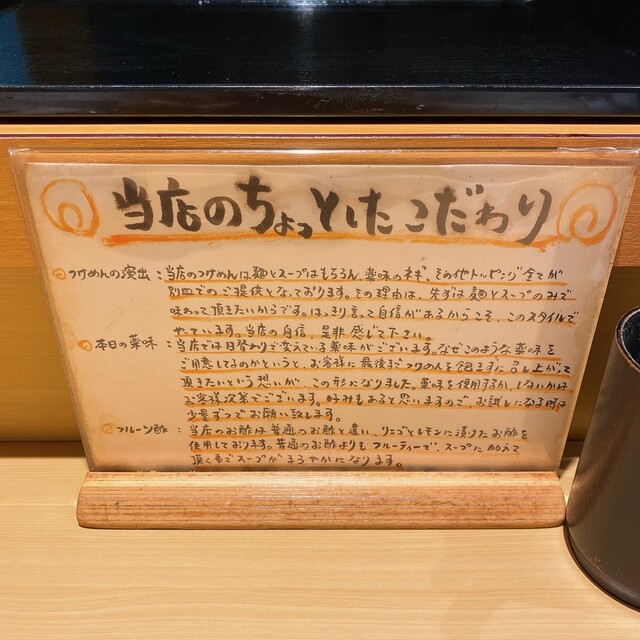 当店のちょっとしたこだわり
つけめんの演出：当店のつけめんは麺とスープはもちろん、薬味のネギ、その他トッピング全てが
別皿でのご提供となっております。その理由は、先ずは麺とスープのみで
味わって頂きたいからです。はっきり言って自信があるからこそ、このスタイルで
やっています。当店の自信、是非感じて下さい。
本日の薬味：当店では日替わりで変えている薬味がございます。なぜこのような薬味を
ご用意してるのかというと、お客様に最後までつけめんを飽きずに召し上がって
頂きたいという想いが、この形になりました。薬味を使用するか、しないかは
お客様次第でございます。好みもあると思いますので、お試しになる時は
少量ずつでお願い致します。
フルーツ酢：当店のお酢は普通のお酢と違い、リンゴとレモンに漬けたお酢を
使用しております。普通のお酢よりもフルーティーで、スープに加えて
頂く事でスープがまろやかになります。